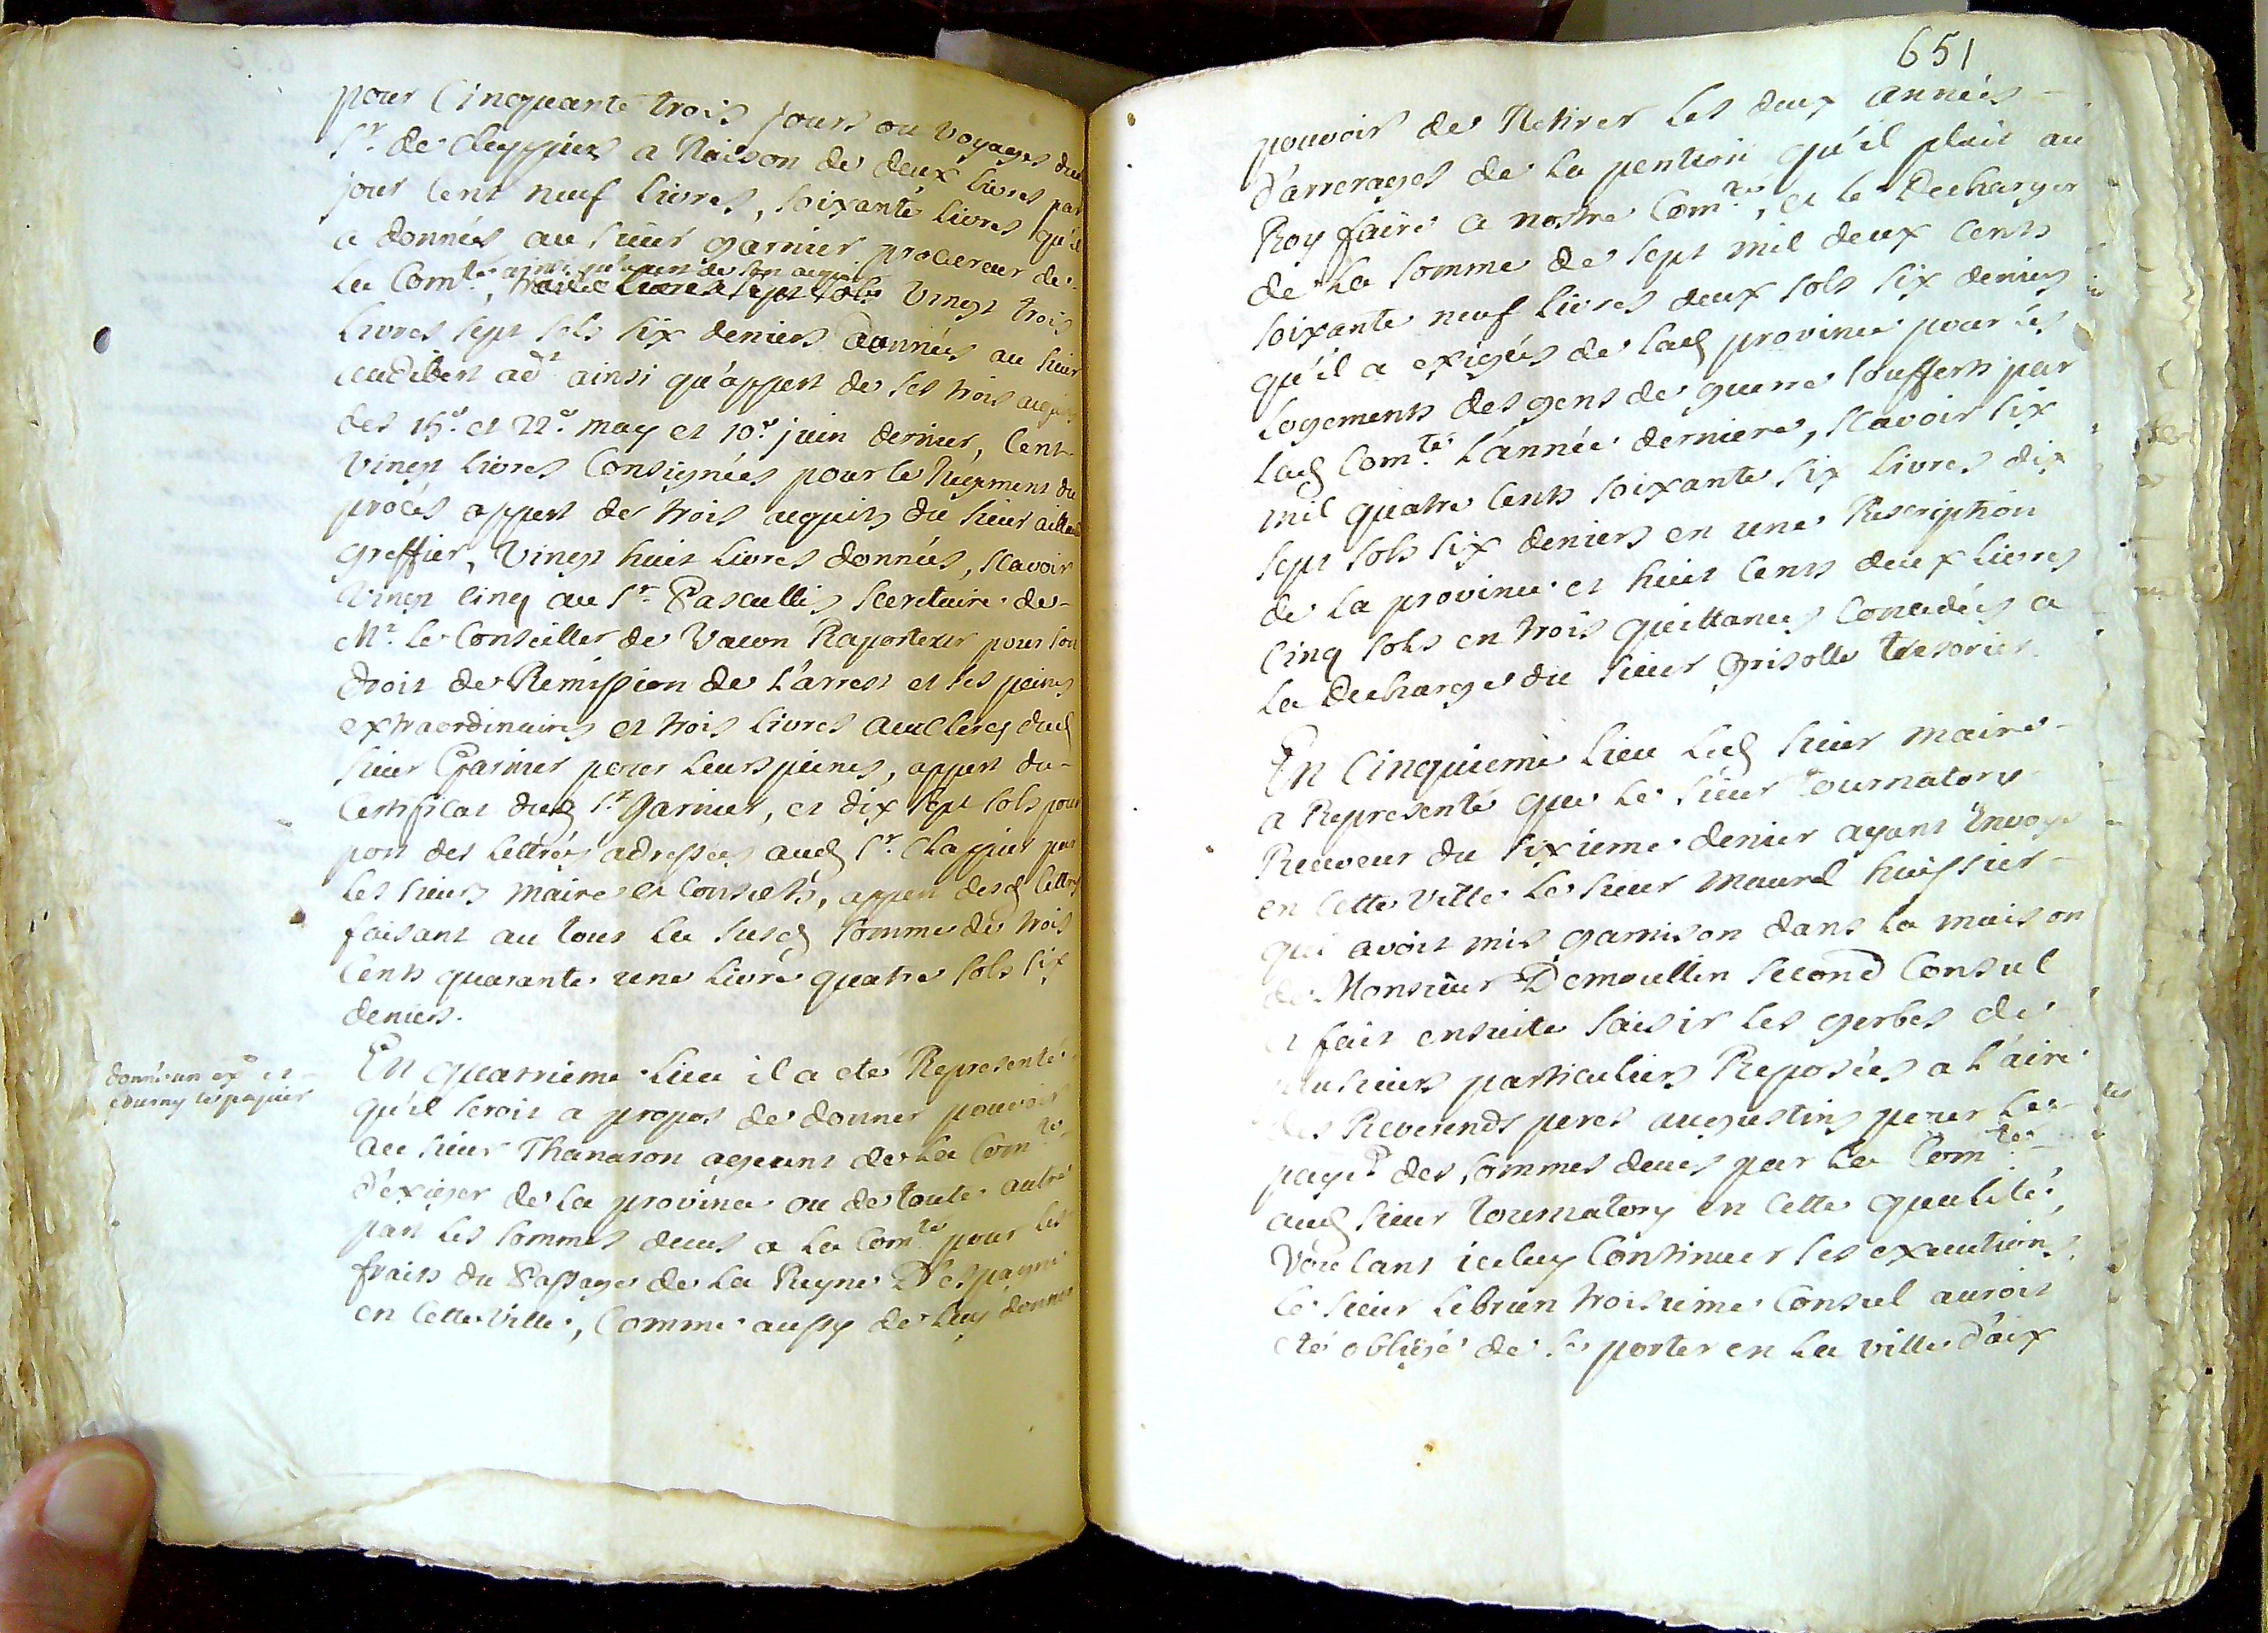 pour Cinquante trois jours ou voyages du
Sr. de Clappiers a Raison de deux livres par
jour Cent neuf livres, soixante livres qu'il
a données au sieur garnier procureur de
La Comté. ainsi qu'apert de son acquit
Vingt trois
Livres sept sols six deniers données au sieur
audibert adt ainsi qu'appert de ses trois acquits
des 15e. et 22e. may et 10e. juin dernier, Cent
Vingt livres Consignées pour le Jugement du
procés appert de trois acquits du sieur aillaud
greffier, Vingt huit Livres données, scavoir
Vingt cinq au Sr. Pascallis secretaire de
Mr. le Conseiller de Vacon Raporteur pour son
droit de Remission de L'arrest et ses peines
extraordinaires et trois livres aux Clercs dud
sieur Garnier pour leurs peines, appert du
Certificat dud Sr. Garnier, et dix sept sols pour
port des lettres adressées aud Sr. Clappiers par
les sieurs Maire et Consuls, appert desd lettres
faisant au tout la susd somme de trois
Cents quarante une livre quatre sols six
deniers.
donné un ext et
fourny le papier
En quatrieme Lieu il a eté Representé
qu'il seroit a propos de donner pouvoir
au sieur Thanaron agent de La Comté
d'exiger de la province ou de toute autre
part les sommes deues a La Comté pour les
fraits du Passage de La Reyne D'espagne
en cette Ville, Comme aussy de luy donner
651
pouvoir de Retirer les deux années
d'arrerages de la pention qu'il plait au
Roy faire a nostre Comté, et le Decharger
de La somme de sept mil deux Cents
soixante neuf livres deux sols six deniers
qu'il a exigés de lad province pour les
Logements des gens de guerre soufferts par
Lad Comté. L'année derniere, scavoir six
mil quatre Cents soixante six livres dix
sept sols six deniers en une Rescription
de La province et huit Cents deux livres
Cinq sols en trois quittances Concedées a
La Decharge du sieur Grisolle tresorier.
En Cinquieme Lieu Led sieur Maire
a Representé que Le sieur tournatory
Receveur du sixieme denier ayant Envoyé
en cette Ville le sieur Maurel huissier
qui avoit mis garnison dans la maison
de Monsieur Demoullin second Consul
et fait ensuite saisir les gerbes de
plusieurs particuliers Reposées a L'aire
des Reverends peres augustins pour Le
payt. des sommes deues par La Comté
aud sieur tournatory en cette qualité,
Voulant iceluy Continuer ses executions
le sieur Lebrun troisieme Consul auroit
eté obligé de se porter en La ville d'aix